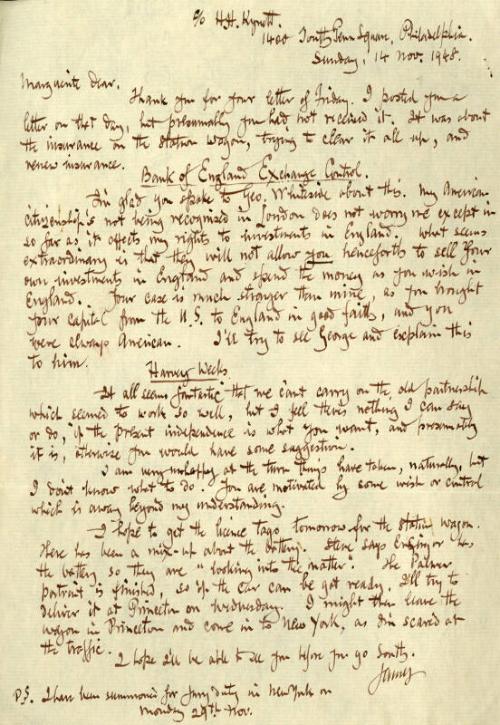 c/o H.H. Kynett.
1400 South Penn Square, Philadelphia.
Sunday, 14 Nov. 1948.
Marguerite dear,
Thank you for your letter of Friday. I posted you a
letter on that day, but presumably you had not received it. It was about
the insurance on the station wagon, trying to clear it all up, and
renew insurance.
Bank of England Exchange Control.
I'm glad you spoke to Geo. Whiteside about this. My American
citizenship's not being recognised in London does not worry me except in
so far as it affects my rights to investments in England. What seems
extraordinary is that they will not allow you henceforth to sell your
own investments in England and spend the money as you wish in
England. Your case is much stronger than mine, as you brought
your capital from the U.S. to England in good faith, and you
were always American. I'll try to see George and explain this
to him.
Harvey Weeks
It all seems fantastic that we can't carry on the old partnership
which seemed to work so well, but I feel there's nothing I can say
or do, if the present independence is what you want, and presumably
it is, otherwise you would have some suggestion.
I am very unhappy at the turn things have taken, naturally, but
I don't know what to do. You are motivated by some wish or control
which is away beyond my understanding.
I hope to get the licence tags tomorrow for the station wagon.
There has been a mix-up about the battery. Steve says has
the battery so they are "looking into the matter". The Palmer
portrait is finished, so if the car can be got ready I'll try to
deliver it at Princeton on Wednesday. I might then leave the
wagon in Princeton and come in to New York, as I'm scared at
the traffic.
I hope I'll be able to see you before you go South.
James
P.S. I have been summoned for Jury duty in New York on
Monday 29th Nov.